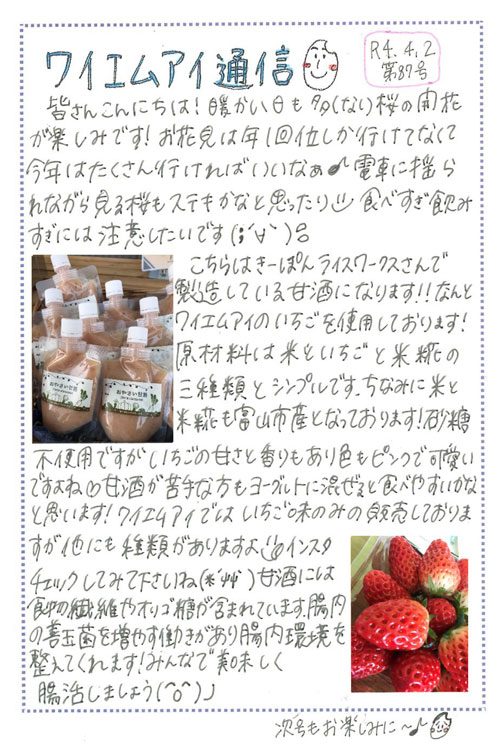 ワイエムアイ通信
R4.4.2
第87号
皆さんこんにちは!暖かい日も多くない桜の開花
が楽しみです!お花見は年1回位しか行けてなくて
今年はたくさん行ければいいなぁ♪電車に揺ら
れながら見る桜もステキかなと思ったり 食べすぎ飲み
すぎには注意したいです(;´∀`)
こちらはきーぽんライスワークスさんで
製造している甘酒になります!!なんと
ワイエムアイのいちごを使用しております!
原材料は米といちごと米糀の
三種類とシンプルです。ちなみに米と
米糀も富山市産となっております!砂糖
不使用ですがいちごの甘さと香りもあり色もピンクで可愛い
ですよね 甘酒が苦手な方もヨーグルトに混ぜると食べやすいかな
と思います!ワイエムアイではいちご味のみの販売しておりま
すが他にも種類がありますよ インスタ
チェックしてみて下さいね(*´艸`)甘酒には
食物繊維やオリゴ糖が含まれています。腸内
の善玉菌を増やす働きがあり腸内環境を
整えてくれます!みんなで美味しく
腸活しましょう(^o^)丿
おやさい甘酒
おやさい甘酒
次号もお楽しみに~♪